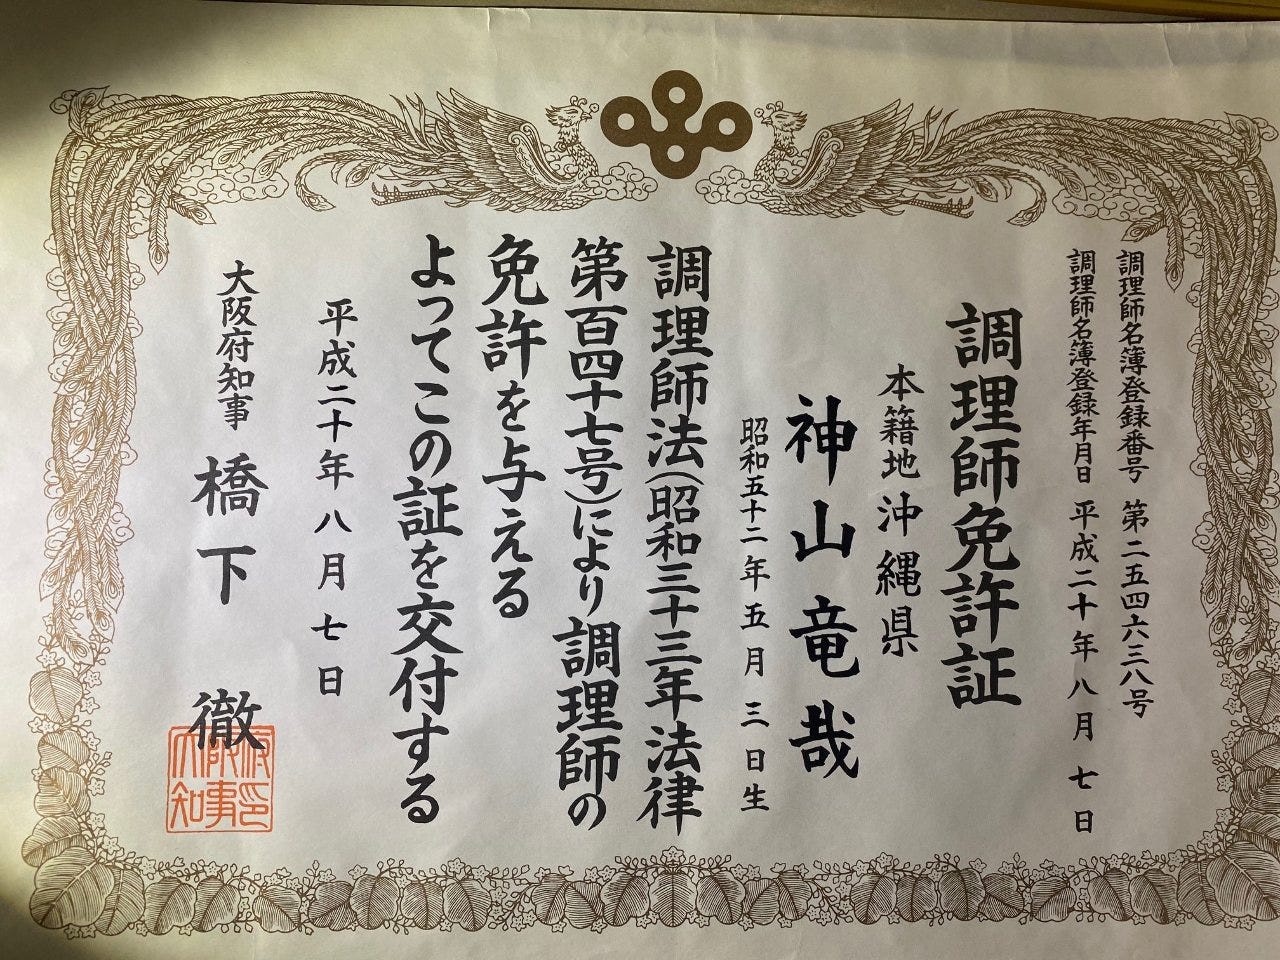 調理師名簿登録番号 第二五四六三八号
調理師名簿登録年月日 平成二十年八月七日
調理師免許証
本籍地 沖縄県
神山竜哉
昭和五十二年五月三日生
調理師法(昭和三十三年法律
第百四十七号)により調理師の
免許を与える
よってこの証を交付する
平成二十年八月七日
大阪府知事 橋下徹
大阪府知事印